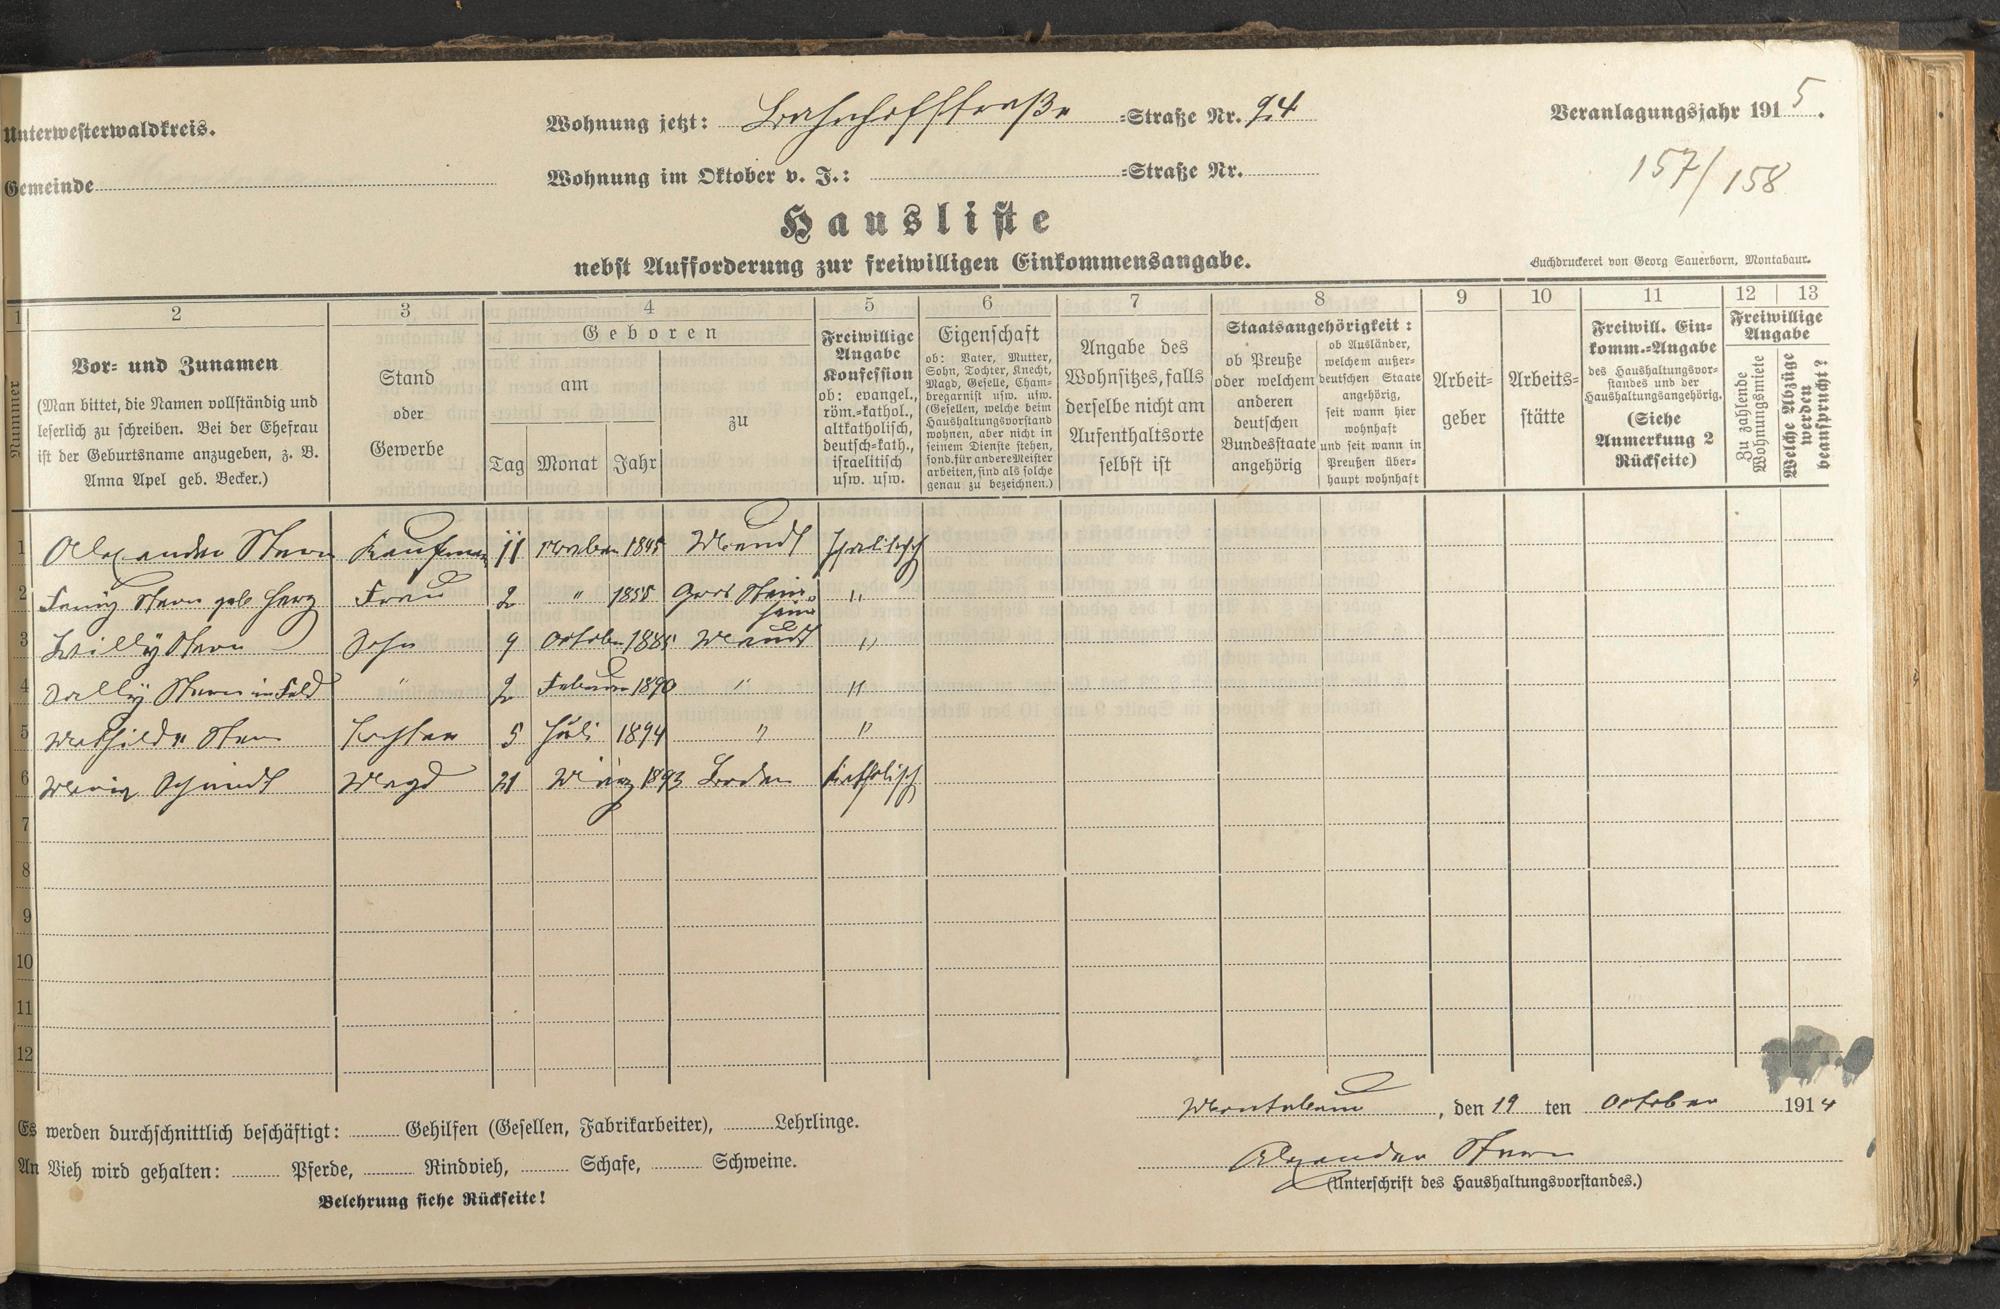 Unterwesterwaldkreis.
Wohnung jetzt: Bahnhofstraße =Straße Nr. 24
Veranlagungsjahr 1915.
Gemeinde
Wohnung im Oktober v. J.: =Straße Nr.
157/158
Hausliste
nebst Aufforderung zur freiwilligen Einkommensangabe.
Buchdruckerei von Georg Sauerborn, Montabaur.
1 2 3 4 5 6 7 8 9 10 11 12 13
Nummer
Vor- und Zunamen
(Man bittet, die Namen vollständig und
leserlich zu schreiben. Bei der Ehefrau
ist der Geburtsname anzugeben, z. B.
Anna Apel geb. Becker.)
Stand
oder
Gewerbe
Geboren
am
Tag Monat Jahr
zu
Freiwillige
Angabe
Konfession
ob: evangel.,
röm.=kathol.,
altkatholisch,
deutsch=kath.,
israelitisch
usw. usw.
Eigenschaft
ob: Vater, Mutter,
Sohn, Tochter, Knecht,
Magd, Geselle, Cham-
bregarnist usw. usw.
(Gesellen, welche beim
Haushaltungsvorstand
wohnen, aber nicht in
seinem Dienste stehen,
sond. für andere Meister
arbeiten, sind als solche
genau zu bezeichnen.)
Angabe des
Wohnsitzes, falls
derselbe nicht am
Aufenthaltsorte
selbst ist
Staatsangehörigkeit:
ob Preuße
oder welchem
anderen
deutschen
Bundesstaate
angehörig
ob Ausländer,
welchem außer-
deutschen Staate
angehörig,
seit wann hier
wohnhaft
und seit wann in
Preußen über-
haupt wohnhaft
Arbeit-
geber
Arbeits-
stätte
Freiwill. Ein-
komm.=Angabe
des Haushaltungsvor-
standes und der
Haushaltungsangehörig.
(Siehe
Anmerkung 2
Rückseite)
Freiwillige
Angabe
Zu zahlende
Wohnungsmiete
Welche Abzüge
werden
beansprucht?
1 Alexander Stern Kaufmann 11 November 1845 Israelitisch
2 Fanny Stern geb Herz Frau 2 " 1855 Gros Stein-
heim "
3 Willy Stern Sohn 9 October 1885 "
4 Sally Stern im Feld " 2 Februar 1890 " "
5 Mathilde Stern Tochter 5 Juli 1894 " "
6 Maria Schmidt Magd 21 März 1893 Boden Katholisch
7
8
9
10
11
12
Montabaur, den 19ten October 1914
Es werden durchschnittlich beschäftigt: Gehilfen (Gesellen, Fabrikarbeiter), Lehrlinge.
Alexander Stern
An Vieh wird gehalten: Pferde, Rindvieh, Schafe, Schweine.
(Unterschrift des Haushaltungsvorstandes.)
Belehrung siehe Rückseite!